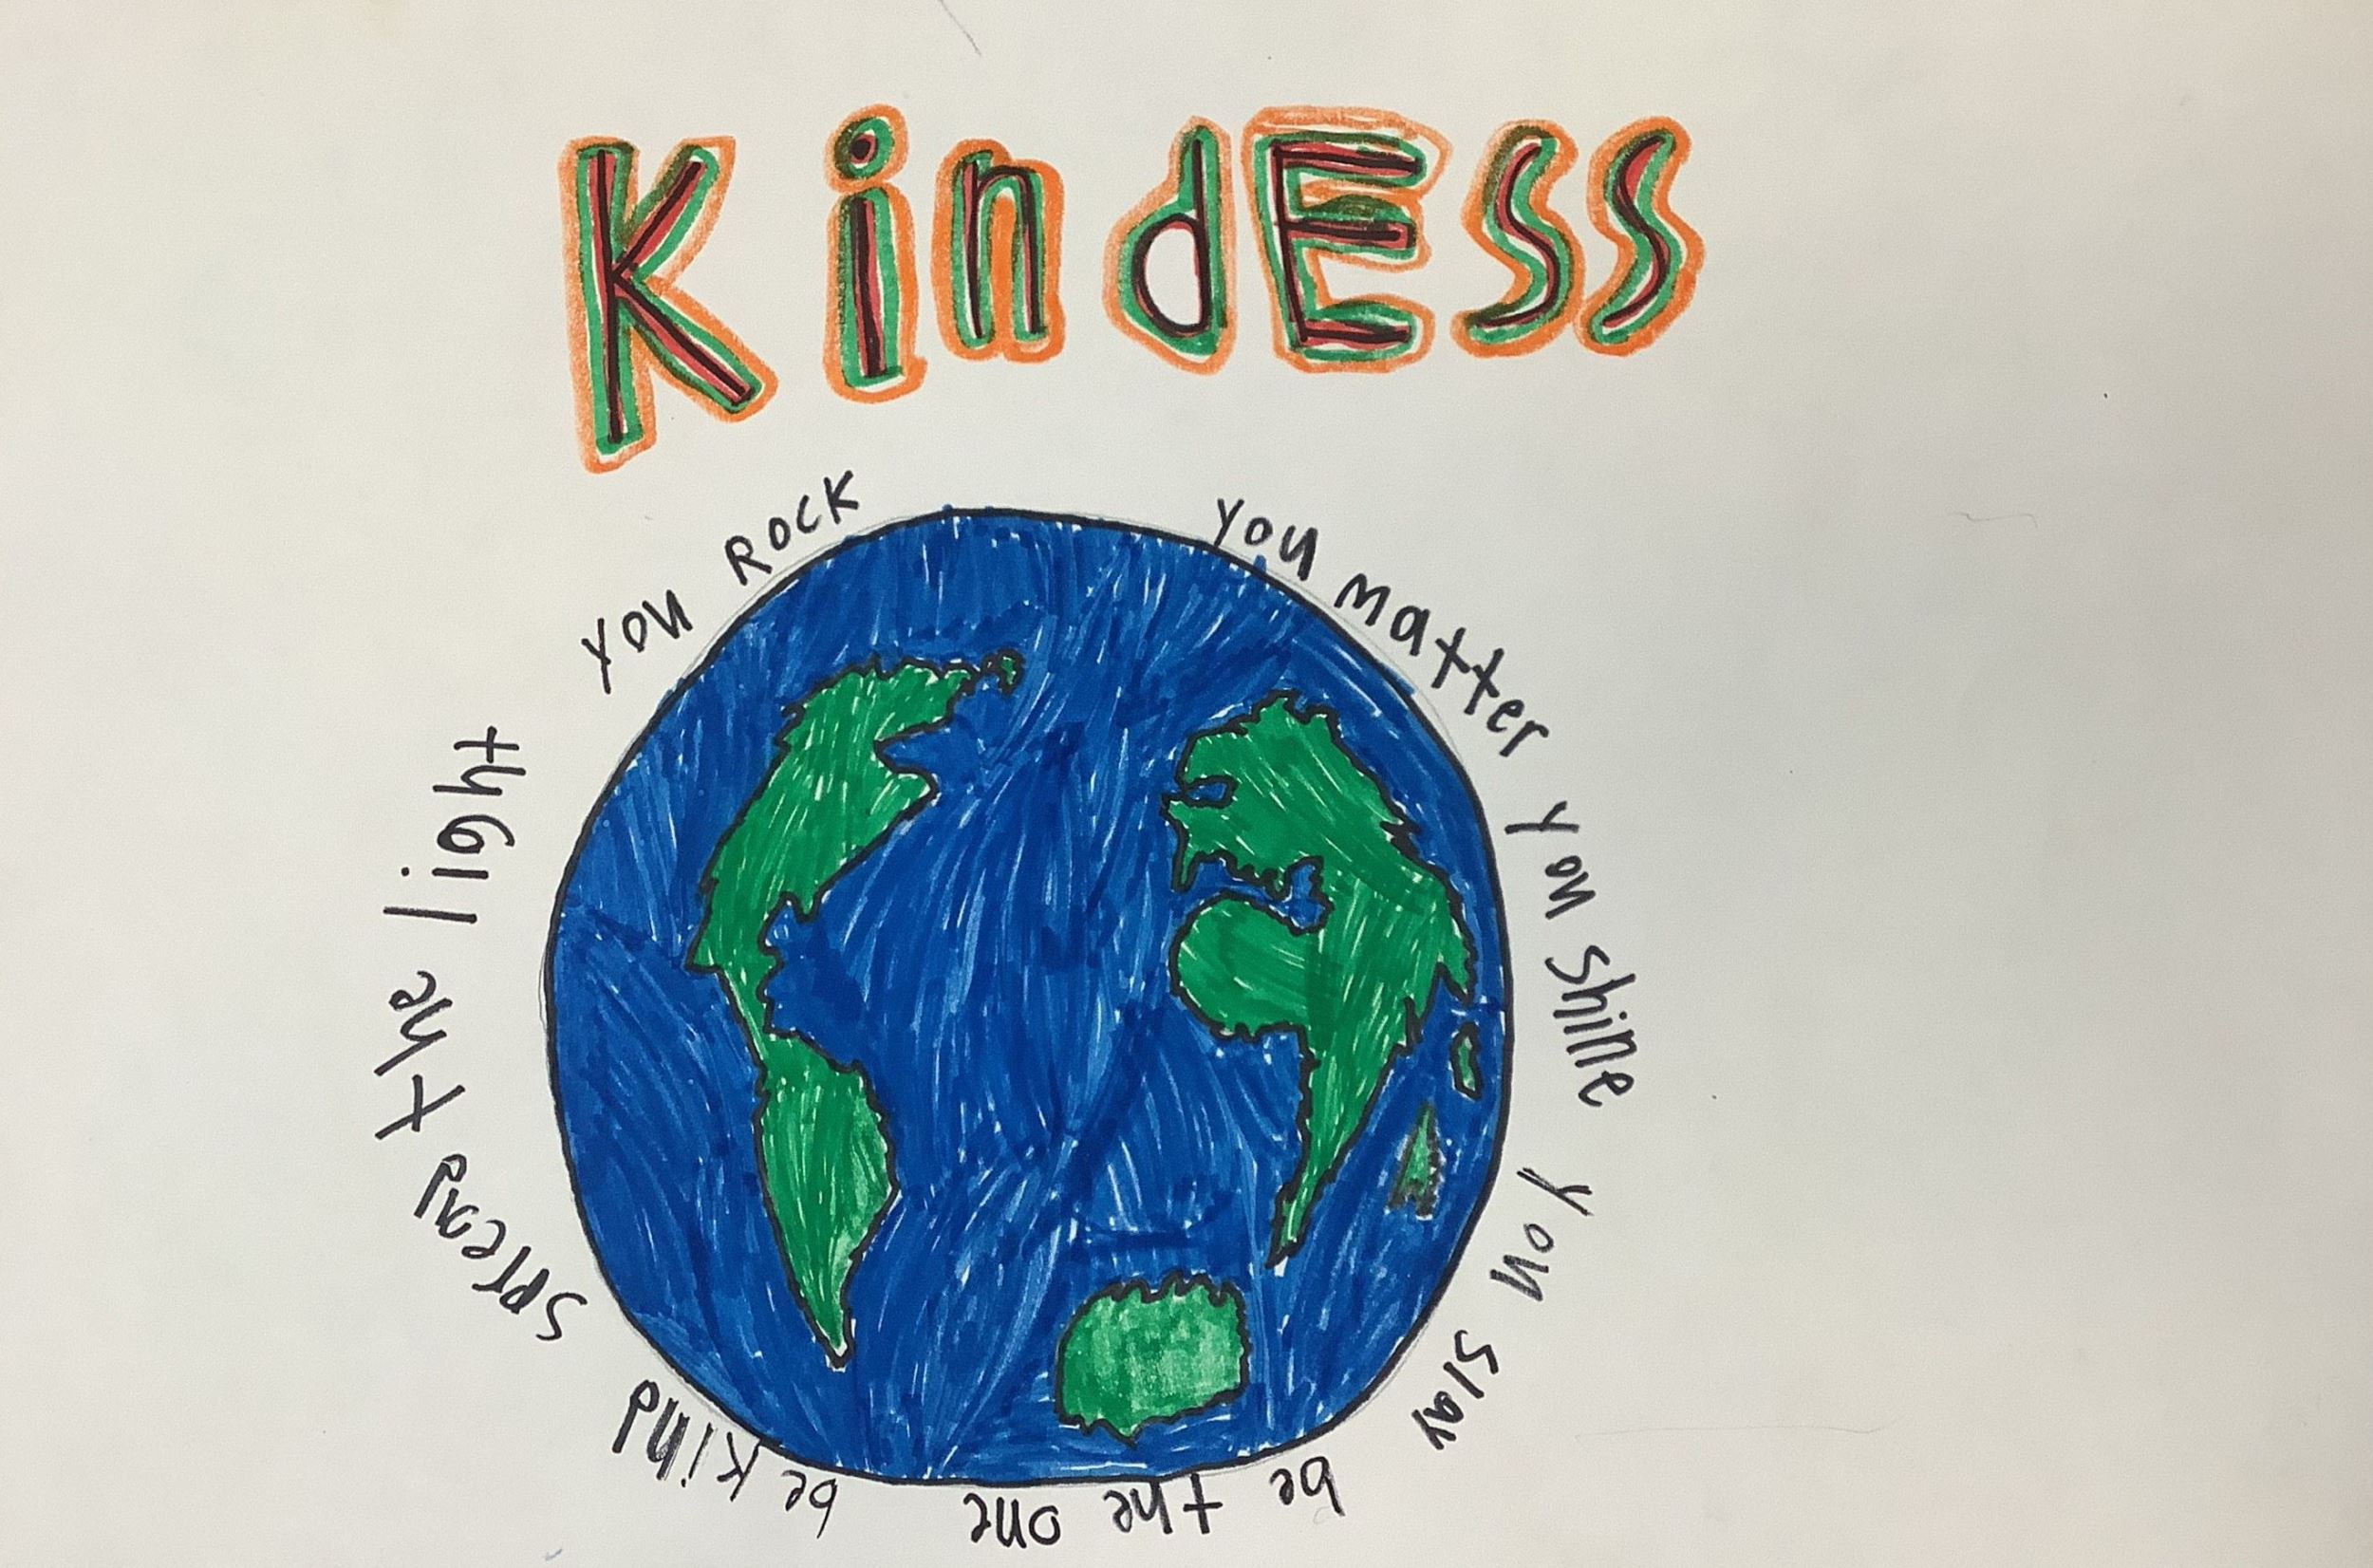 KindEss
you ROCK
you matter
you shine
you slay
be the one
be kind
spread the light